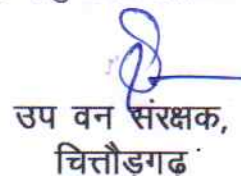 उप वन संरक्षक,
चित्तौड़गढ